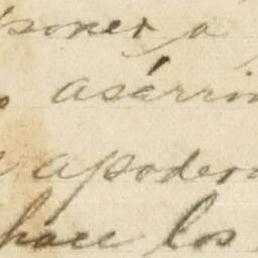 poner a
asérrin
apoder
hace los